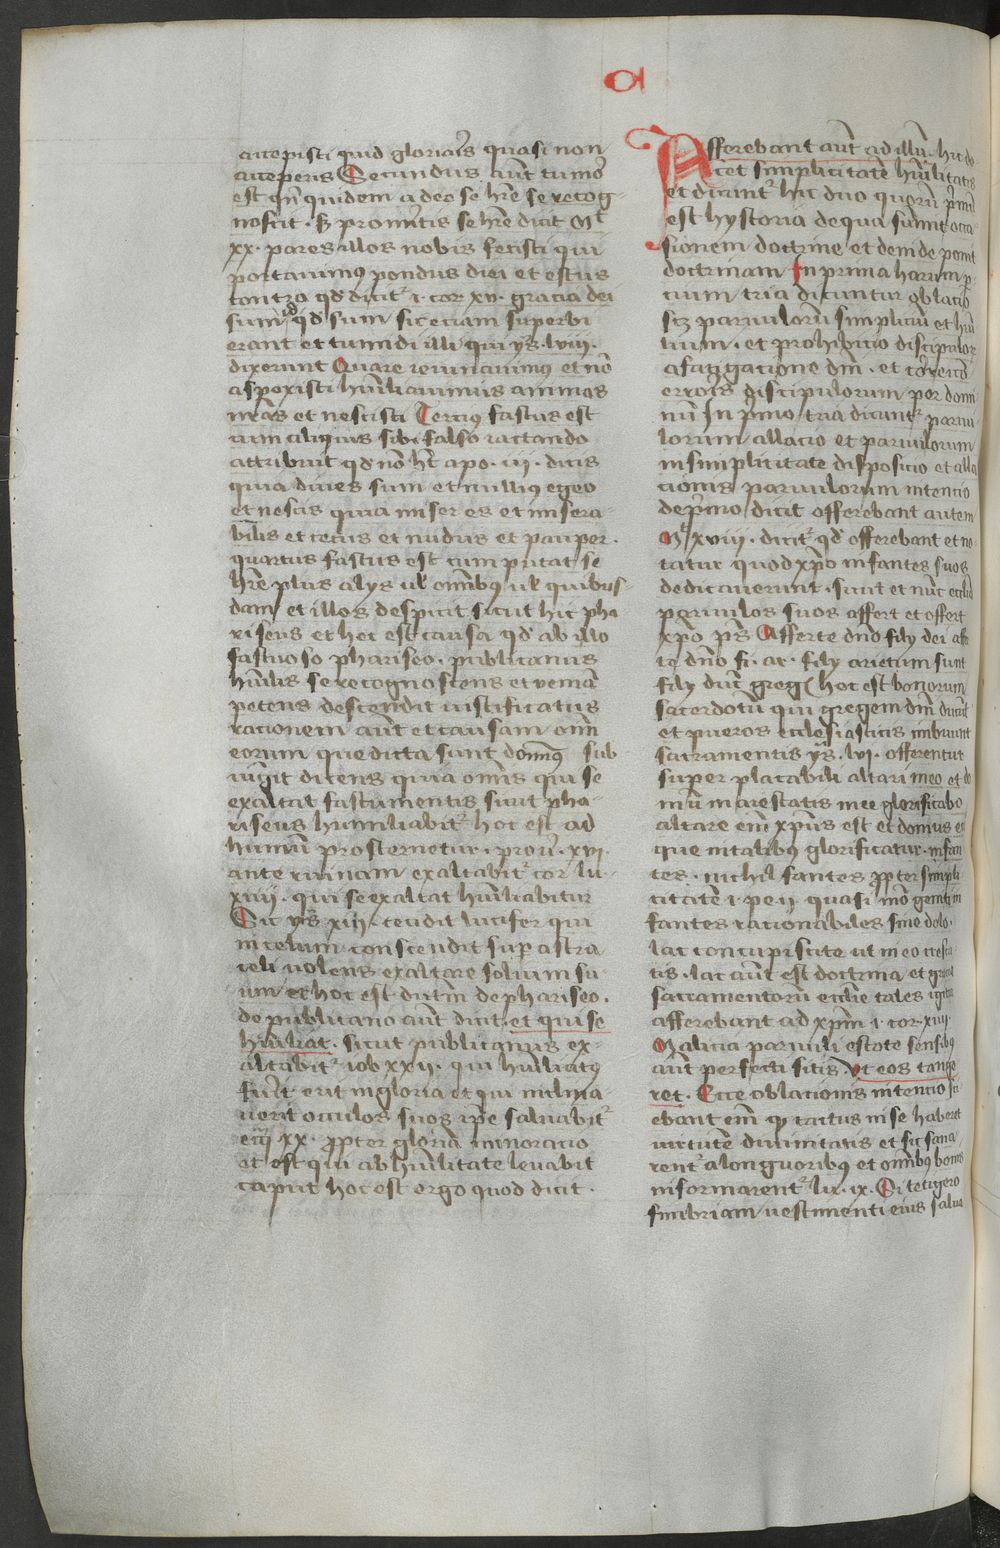 accepisti quid gloriaris quasi non
acceperis Secundus aut̄ tumor
est qn̄ quidem a deo se hr̄e se recog
noscit · S; promeritis se hr̄e dicit Mt
xx · pares illos nobis fecisti qui
portauimus pondus diei et estus
contra qd̄ dicit² 1 · cor xv · gracia dei
sum id qd̄ sum sic eciam superbi
erant et tumidi illi qui ys · lviii ·
dixerunt Quare ieiunauimus et nō
aspexisti hūiliauimus animas
nr̄as et nescisti Tercius fastus est
cum aliquis sibi falso iactando
attribuit qd̄ nō ht̄ apo · iii · dicis
quia diues sum et nullius egeo
et nescis quia miser es et misera
bilis et cecus et nudus et pauper ·
quartus fastus est cum putat se
hr̄e plus alijs ul̄ om̄ibus ul̄ quibus
dam et illos despicit sicut hic pha
riseus et hec est causa qd̄ ab illo
fastuoso phariseo · publicanus
hūilis se recognoscens et veniā
petens descendit iustificatus
racionem aut̄ et causam om̄
eorum que dicta sunt dominus sub
iūgit dicens quia om̄is qui se
exaltat fastu mentis sicut pha
riseus humiliabit² hoc est ad
humū prosternetur · prou · xvi ·
ante ruinam exaltabit² cor lu
xiiii · qui se exaltat hūiliabitur
Sic ys xiii · cecidit lucifer qui
in celum conscendit sup astra
celi uolens exaltare solium su
um et hoc est dictū de phariseo ·
de publicano aut̄ dicit · et qui se
hūiliat · sicut publicanus ex
altabit² iob xxii · qui hūiliatus
fuīt erit in gloria et qui inclina
uerit oculos suos ip̄e saluabit²
eccī xx · ꝓpter gloriā minoracio
et est qui ab hūilitate leuabit
caput hoc est ergo quod dicit ·
Afferebant aut̄ ad illū · hic do
cet simplicitatē hūilitatis
et dicunt² hic duo quorū p̄mū
est hystoria de qua sumit occa
sionem doctrine et deinde ponit
doctrinam In prima harum p
cium tria dicuntur oblacio
scꝫ paruulorū simpliciū et hūi
lium · et prohibicio discipulor
a fatigacione dn̄i · et cōrectō
erroris discipulorum per domi
nū In p̄mo tria dicunt² paruu
lorum allacio et paruulorum
in simplicitate disposicio et alla
cionis paruulorum intencio
de p̄mo dicit offerebant autem
Mt xviii · dicit² qd̄ offerebant et no
tatur quod xp̄o infantes suos
dedicauerunt · sicut et nūc ecclīa
paruulos suos affert et offert
xp̄o ps̄ Afferte dn̄o filij dei affer
te dn̄o fi · ar · filij arietum sunt
filij ducū greg hoc est bonorum
sacerdotū qui gregem dn̄i ducūt
et pueros ecclesiasticis imbuunt
sacramentis ys · lvi · offerentur
super placabili altari meo et do
mū maiestatis mee glorificabo
altare em̄ xp̄us est et domus ei
que in talibus glorificatur · infan
tes · nichil fantes ꝓpter simpli
citatē 1 · pe ii · quasi mō geniti in
fantes racionabiles sine dolo ·
lac concupiscite ut in eo cresca
tis · lac aut̄ est doctrina et gracia
sacramentorū ecclīe tales igitur
afferebant ad xp̄m 1 · cor · xiiii ·
Malicia paruuli estote sensibus
aut̄ perfecti sitis · Vt eos tange
ret · Ecce oblacionis intencio sci
ebant em̄ qꝫ tactus in se haberet
uirtutē diuinitatis et sic sana
rent² a languoribus et om̄ibus bonis
informarent² lu · ix · Si tetigero
fimbriam uestimenti eius salua